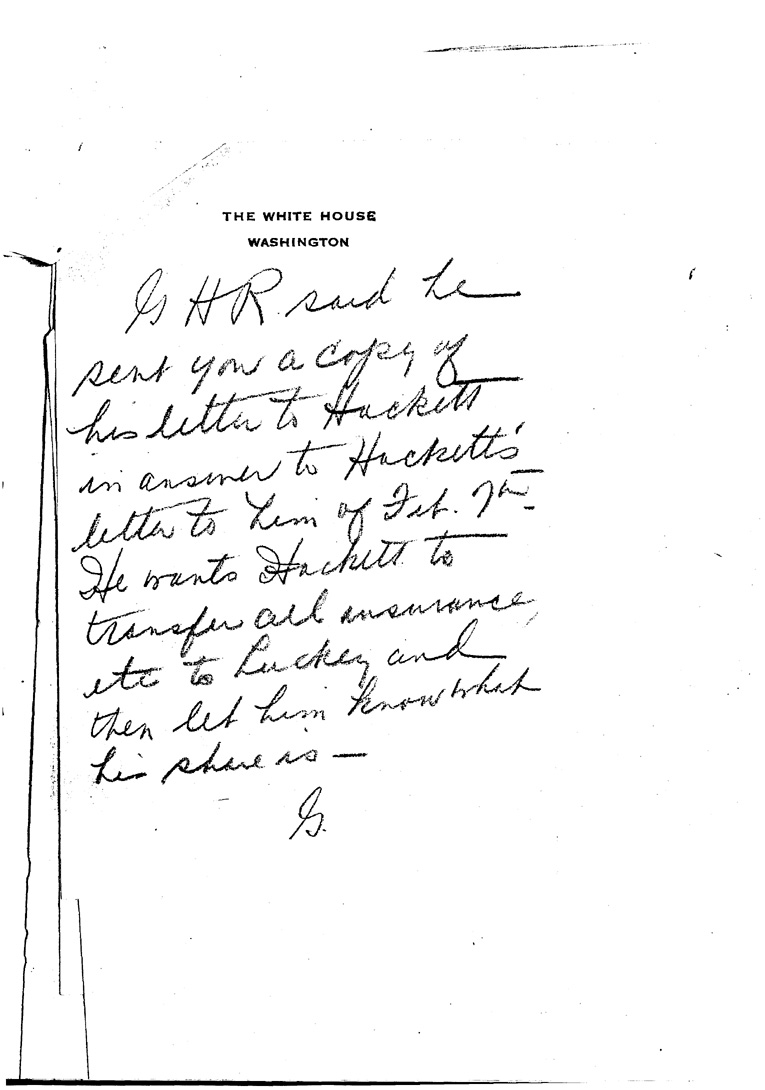 THE WHITE HOUSE
WASHINGTON
G H R. said he
sent you a copy of
his letter to Hackett
in answer to Hackett's
letter to him of Feb. 7th -
He wants Hackett to
transfer all insurance,
etc to Luckey and
then let him know what
his share is —
G.